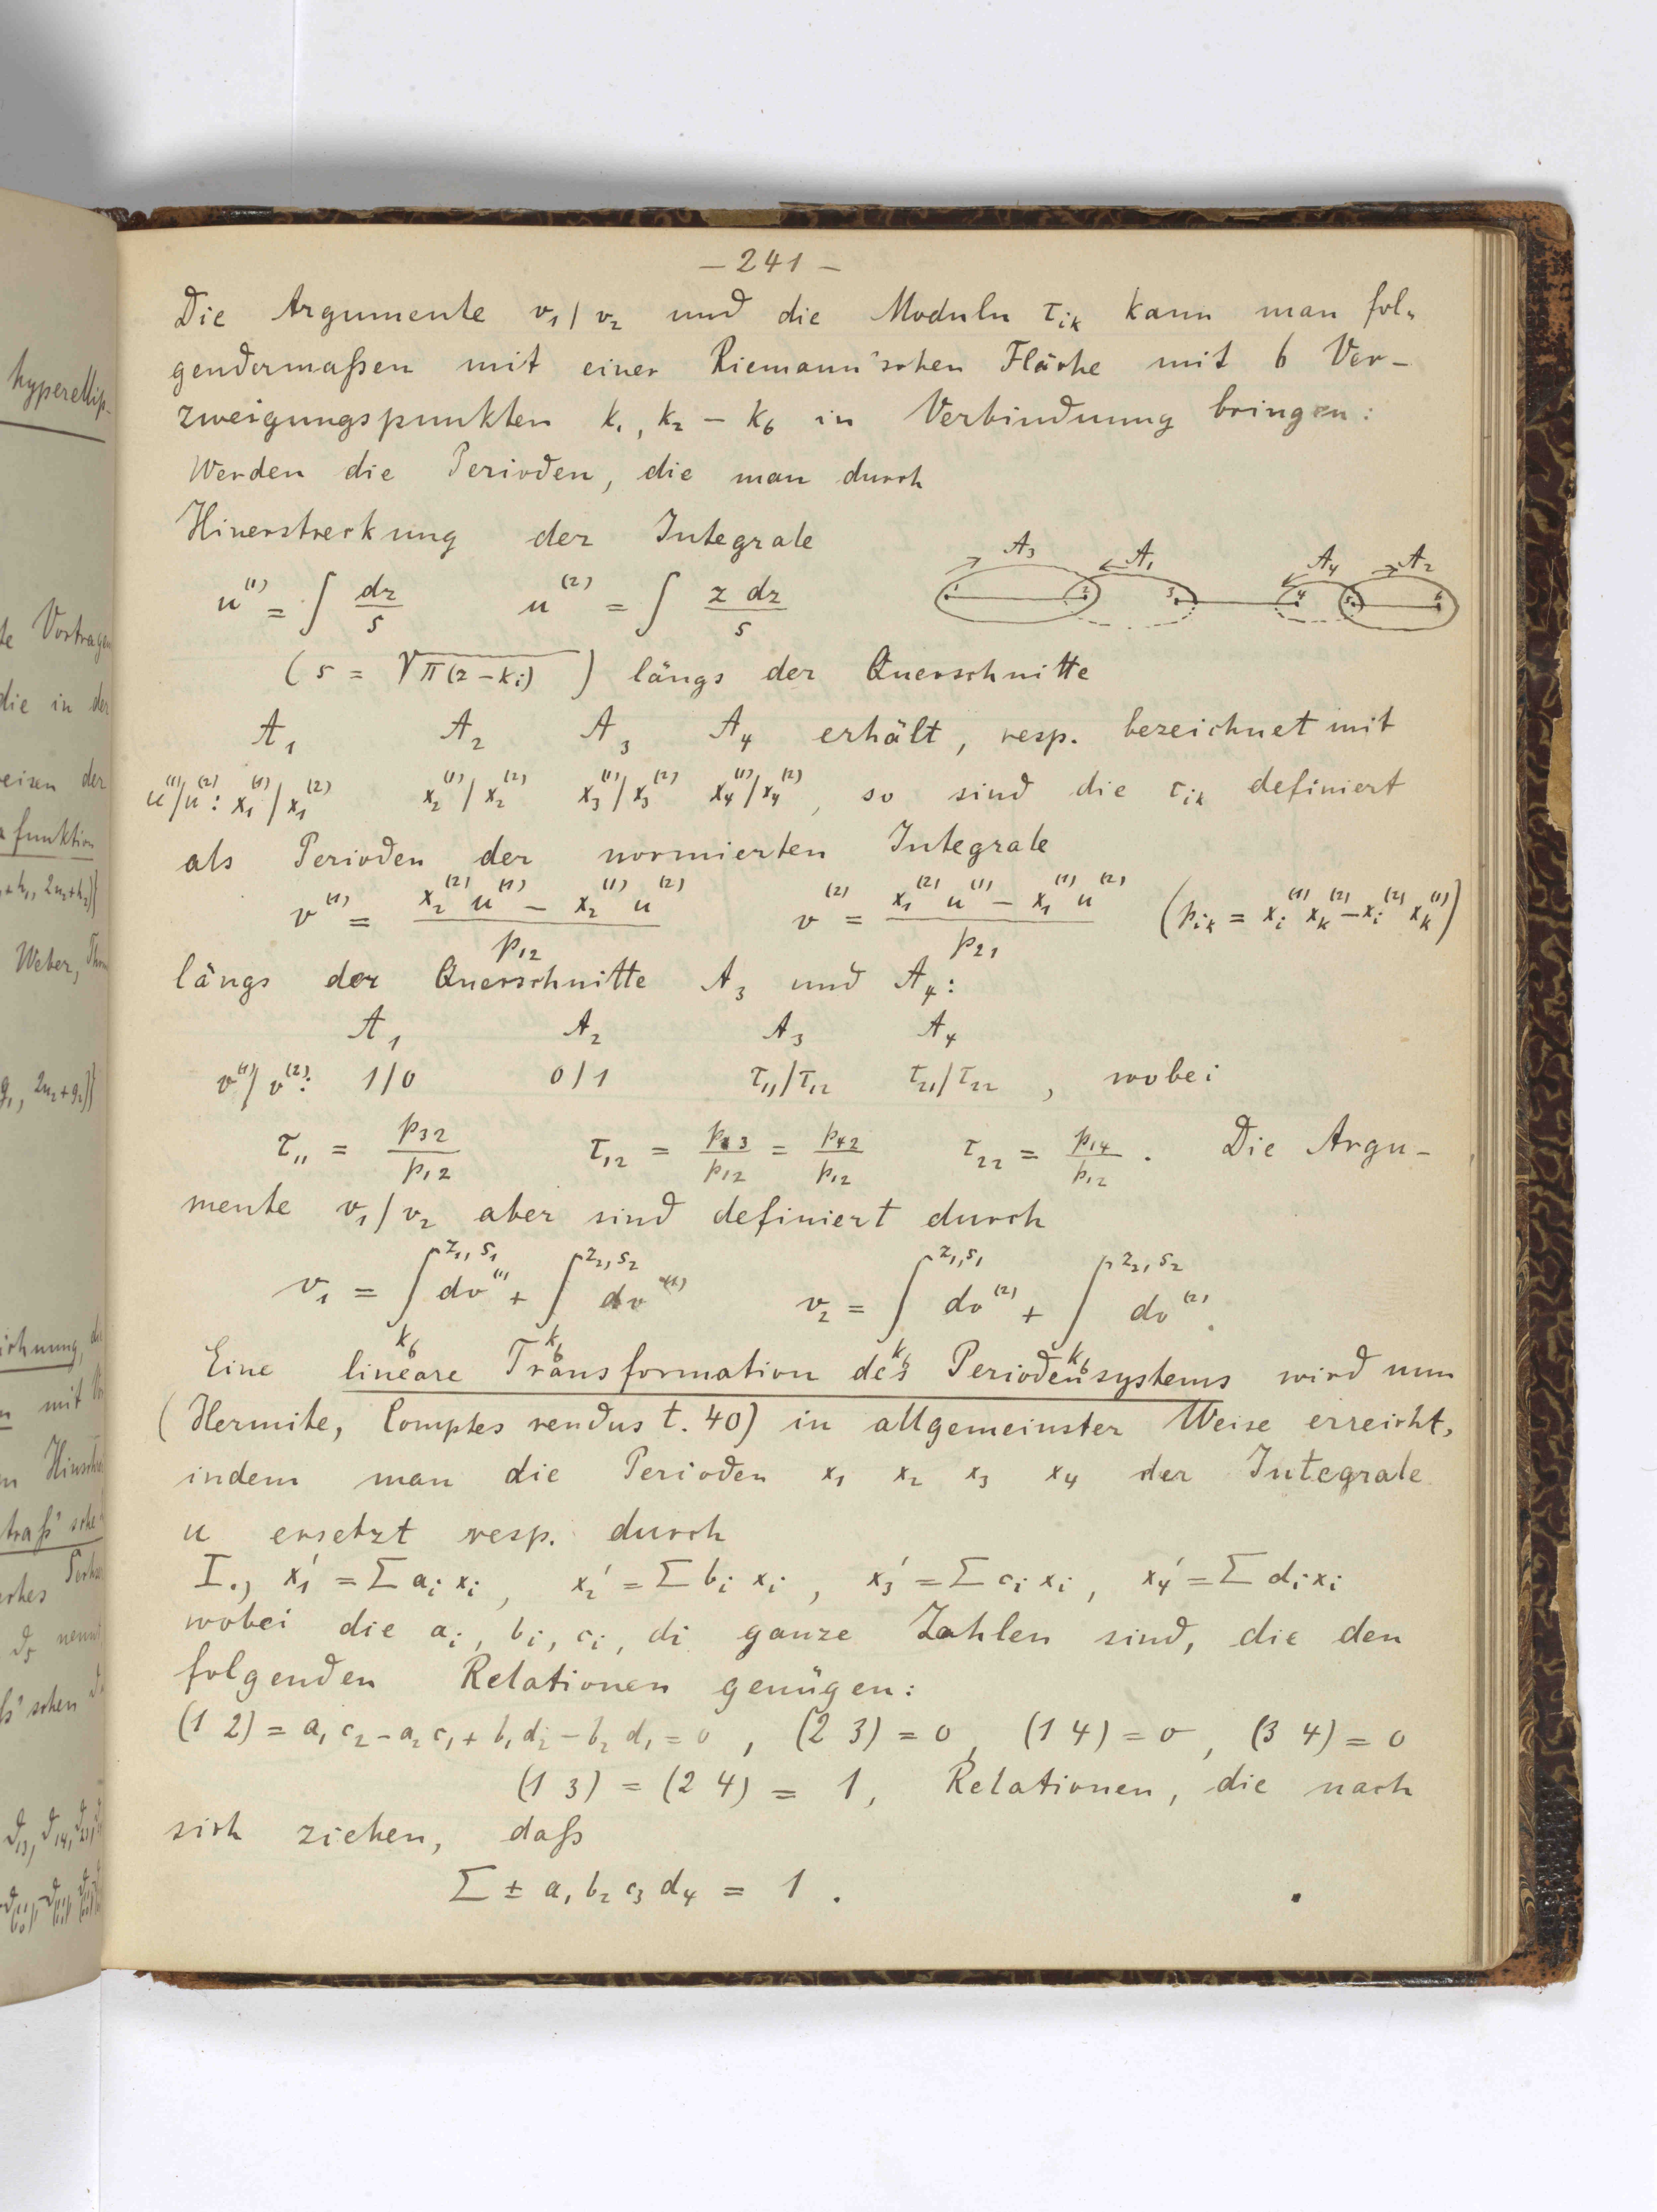 – 241 –
Die Argumente v₁ / v₂ und die Moduln τᵢₖ kann man fol-
gendermaßen mit einer Riemann'schen Fläche mit 6 Ver-
zweigungspunkten k₁, k₂ – k₆ in Verbindung bringen:
Werden die Perioden, die man durch
Hinerstreckung der Integrale
u⁽¹⁾ = ∫ dz/s u⁽²⁾ = ∫ z dz/s
A₃ A₁ A₄ A₂
1 2 3 4 5 6
(s = √π(z – kᵢ) ) längs der Querschnitte
A₁ A₂ A₃ A₄ erhält, resp. bezeichnet mit
u⁽¹⁾/u⁽²⁾: x₁⁽¹⁾ / x₁⁽²⁾ x₂⁽¹⁾ / x₂⁽²⁾ x₃⁽¹⁾ / x₃⁽²⁾ x₄⁽¹⁾ / x₄⁽²⁾, so sind die τᵢₖ definiert
als Perioden der normierten Integrale
v⁽¹⁾ = (x₂⁽²⁾ u⁽¹⁾ – x₂⁽¹⁾ u⁽²⁾) / p₁₂ v⁽²⁾ = (x₁⁽²⁾ u⁽¹⁾ – x₁⁽¹⁾ u⁽²⁾) / p₂₁ (pᵢₖ = xᵢ⁽¹⁾ xₖ⁽²⁾ – xᵢ⁽²⁾ xₖ⁽¹⁾)
längs der Querschnitte A₃ und A₄:
A₁ A₂ A₃ A₄
v⁽¹⁾/v⁽²⁾: 1/0 0/1 τ₁₁/τ₁₂ τ₂₁/τ₂₂, wobei
τ₁₁ = p₃₂/p₁₂ τ₁₂ = p₁₃/p₁₂ = p₄₂/p₁₂ τ₂₂ = p₁₄/p₁₂. Die Argu-
mente v₁/v₂ aber sind definiert durch
v₁ = ∫_{k₆}^{z₁, s₁} dv⁽¹⁾ + ∫_{k₆}^{z₂, s₂} dv⁽¹⁾ v₂ = ∫_{k₆}^{z₁, s₁} dv⁽²⁾ + ∫_{k₆}^{z₂, s₂} dv⁽²⁾.
Eine lineare Transformation des Periodensystems wird nun
(Hermite, Comptes rendus t. 40) in allgemeinster Weise erreicht,
indem man die Perioden x₁ x₂ x₃ x₄ der Integrale
u ersetzt resp. durch
I.) x₁' = Σ aᵢ xᵢ, x₂' = Σ bᵢ xᵢ, x₃' = Σ cᵢ xᵢ, x₄' = Σ dᵢ xᵢ
wobei die aᵢ, bᵢ, cᵢ, dᵢ ganze Zahlen sind, die den
folgenden Relationen genügen:
(1 2) = a₁ c₂ – a₂ c₁ + b₁ d₂ – b₂ d₁ = 0, (2 3) = 0, (1 4) = 0, (3 4) = 0
(1 3) = (2 4) = 1, Relationen, die nach
sich ziehen, daß
Σ ± a₁ b₂ c₃ d₄ = 1.